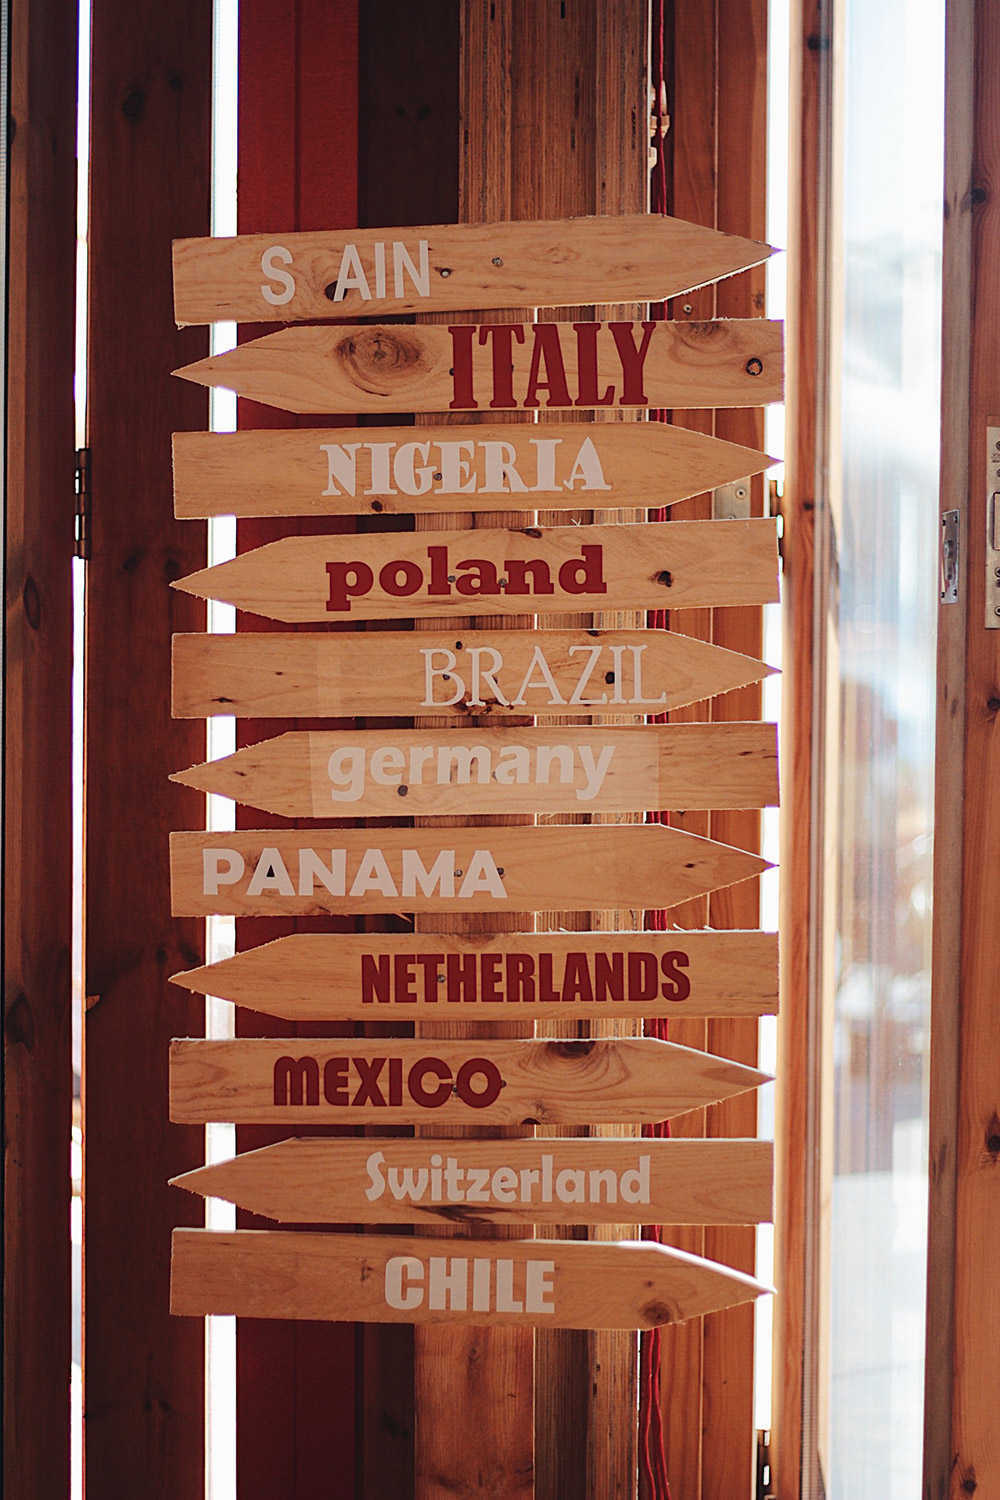 S AIN
ITALY
NIGERIA
poland
BRAZIL
germany
PANAMA
NETHERLANDS
MEXICO
Switzerland
CHILE